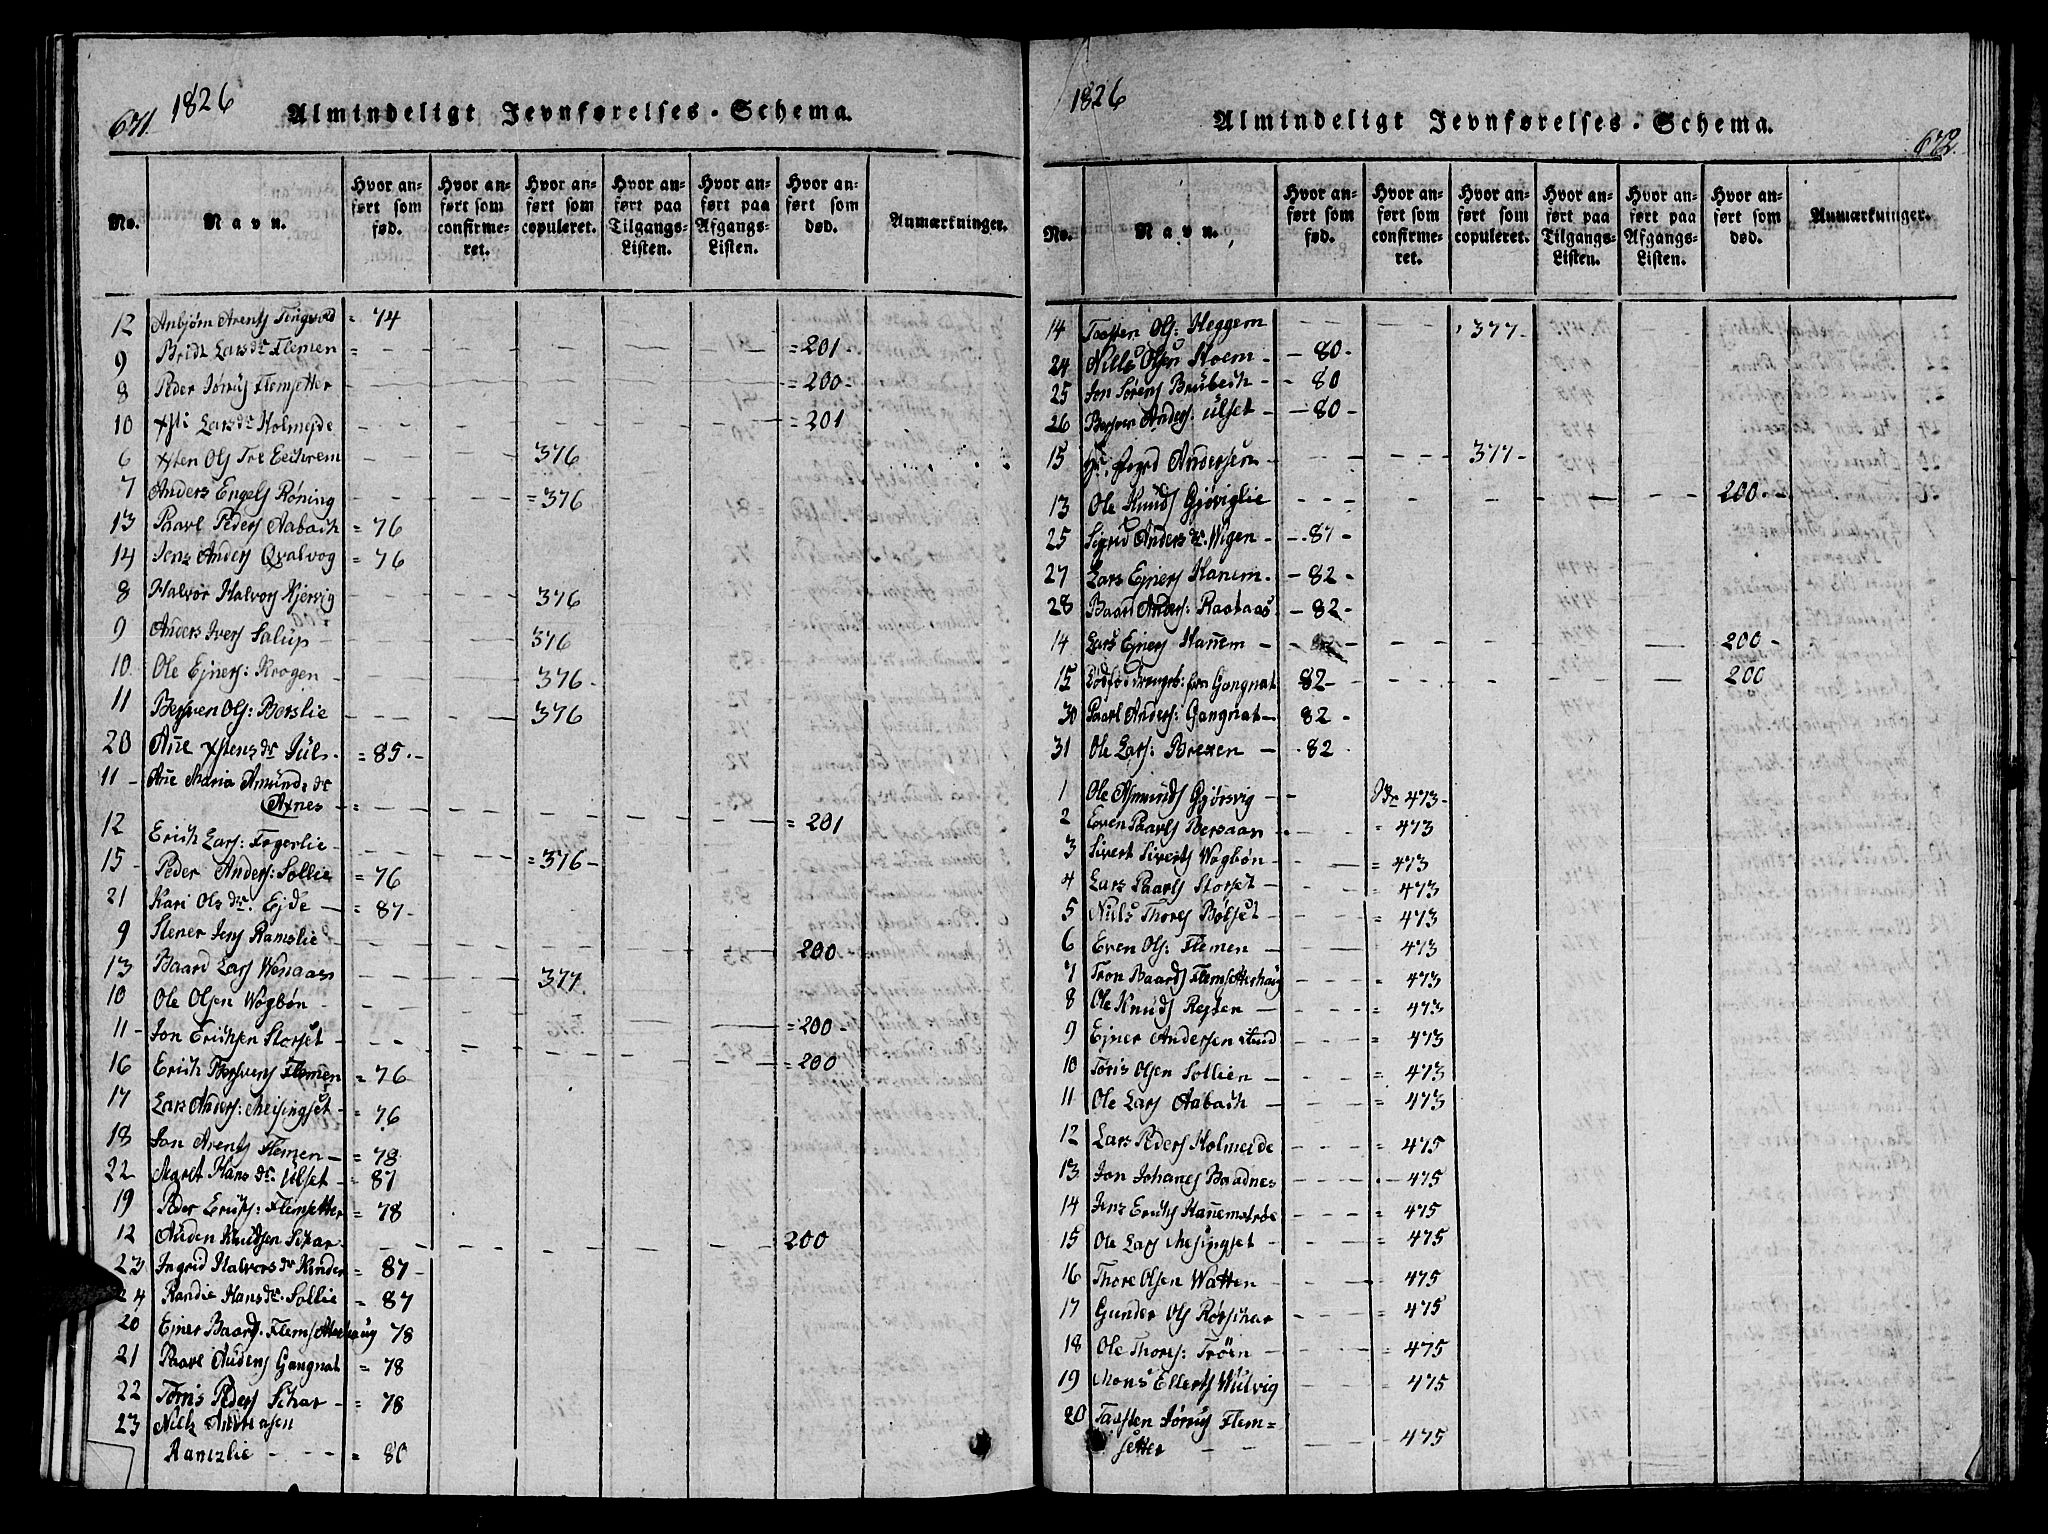 671. 1826 Almindeligt Jevnførelses-Schema.
No. Navn. Hvor anført som fød. Hvor anført som confirmeret. Hvor anført som copuleret. Hvor anført paa Tilgangs-Listen. Hvor anført paa Afgangs-Listen. Hvor anført som død. Anmærkninger.
12 Anbjørn Arents Tingvod = 74
9 Bridt Larsdr Flemen = 201
8 Peder Jonus Flemsetter = 200
10 Larsdr Holmejde = 201
6 xsten Ols Tre Eechrem 376
7 Anders Engels Røning = 376
13 Paarl Peders Aabach = 76
14 Jens Anders Qvalvog = 76
8 Halvor Halvors Kjervig 376
9 Anders Ivers Salup 376
10 Ole Ejners: Krogen 376
11 Bersven Ols: Berslie 376
20 Añe xstensdr Juls = 85
11 Añe Maria Amundsdr Axnes = 201
12 Erich Lars: Fogerlie = 376
15 Peder Anders: Sollie = 76
21 Kari Olsdr. Ejde = 87
9 Stener Jens Ramslie 200
13 Baard Lars Wenaas 377
10 Ole Olsen Wogbøn = 200
11 Jon Erichsen Storset = 200
16 Erich Bersvens Flemen = 76
17 Lars Anders: Meisingset = 76
18 Jon Arents Flemen = 78
22 Magret Hansdr. Ulset = 87
19 Peder Erichs: Flemsetter = 78
12 Auden Knudsen Schar 200
23 Ingrid Halvorsdr Kinder = 87
24 Randie Hansdr. Sollie = 87
20 Ejner Baards. Flemsetterhaug 78
21 Paarl Audens Gangnat = 78
22 Tøris Peders Schar = 78
23 Niels Andreasen
Ranezlie = 80
1826 Almindeligt Jevnførelses-Schema. 672.
No. Navn. Hvor anført som fød. Hvor anført som confirmeret. Hvor anført som copuleret. Hvor anført paa Tilgangs-Listen. Hvor anført paa Afgangs-Listen. Hvor anført som død. Anmærkninger.
14 Tosten Ols: Heggem 377
24 Nills Olsen Hoem 80
25 Jon Sørens Brubech 80
26 Bersven Anders: Ulset 80
15 Hr. Andersen 377
13 Ole Knuds Gjøviglie 200
25 Sigrid Andersdr. Wigen 87
27 Lars Ejners Hanem 82
28 Baard Anders: Raataas 82
14 Lars Ejners Hañem 200
15 Dødfød Drengeb: fra Gangnat 82 200
30 Paarl Anders: Gangnat 82
31 Ole Lars: Brexen 82
1 Ole Asmunds Gjørsvig 473
2 Even Paarls Bersaan = 473
3 Sivert Siverts Wogbøn = 473
4 Lars Paarls Storset = 473
5 Niels Thores Bølset = 473
6 Even Ols: Flemen 473
7 Tron Baards Flemsetterhaug = 473
8 Ole Knuds Resten = 473
9 Ejner Andersen Sund = 473
10 Tøris Olsen Sollien = 473
11 Ole Lars Aabach = 473
12 Lars Peders Holmeide = 475
13 Jon Johanes Baadnes 475
14 Jens Erichs Hañemstrøe = 475
15 Ole Lars Mesingset = 475
16 Thore Olsen Watten 475
17 Gunder Ols Rørschar = 475
18 Ole Thores: Trøen = 475
19 Mons Ellerts Wulvig = 475
20 Tarsten Jonus Flem=
setter 475